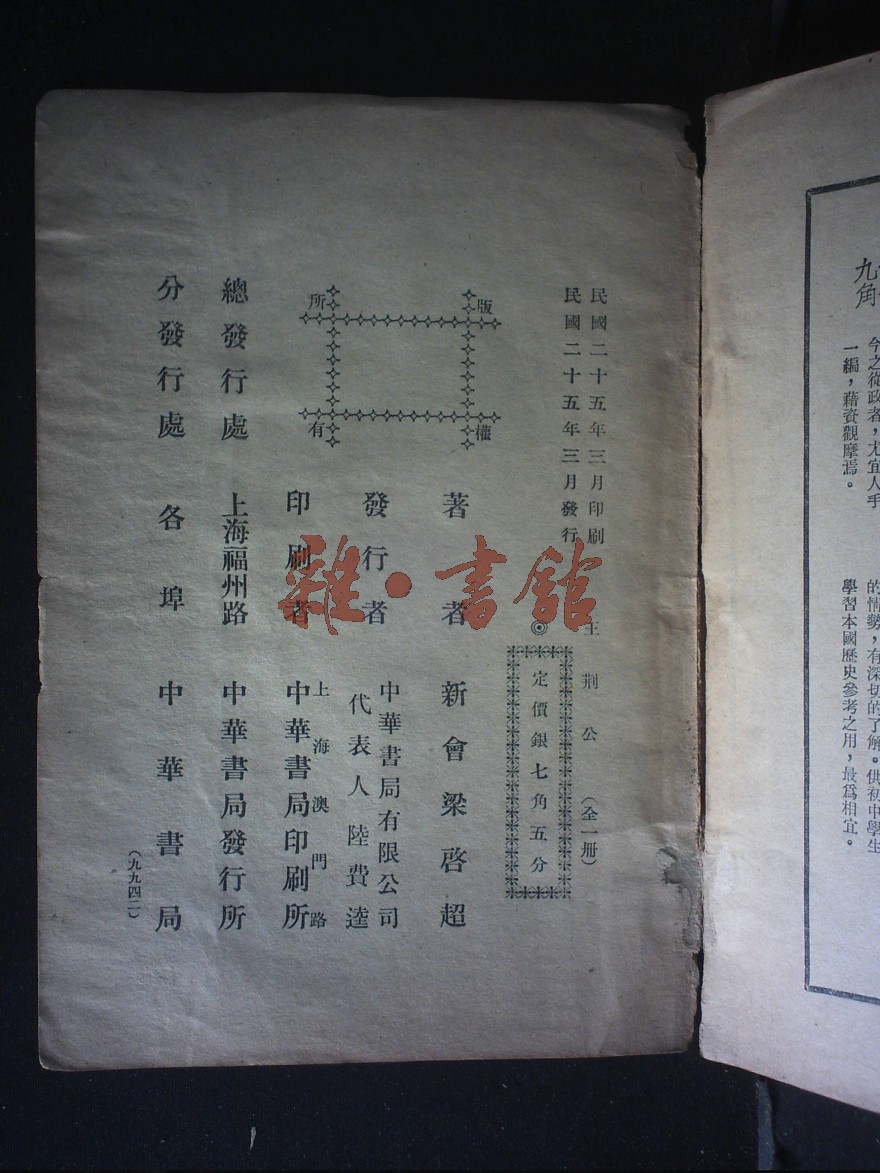 九角
今之從政者，尤宜人手
一編，藉資觀摩焉。
的情勢，有深切的了解。供初中學生
學習本國歷史參考之用，最爲相宜。
民國二十五年三月印刷
民國二十五年三月發行
王荆公（全一册）
◎定價銀七角五分
版權
所有
著者 新會梁啓超
發行者 中華書局有限公司
代表人陸費逵
印刷者 上海澳門路
中華書局印刷所
總發行處 上海福州路 中華書局發行所
分發行處 各埠 中華書局
（九九四二）
雜·書館